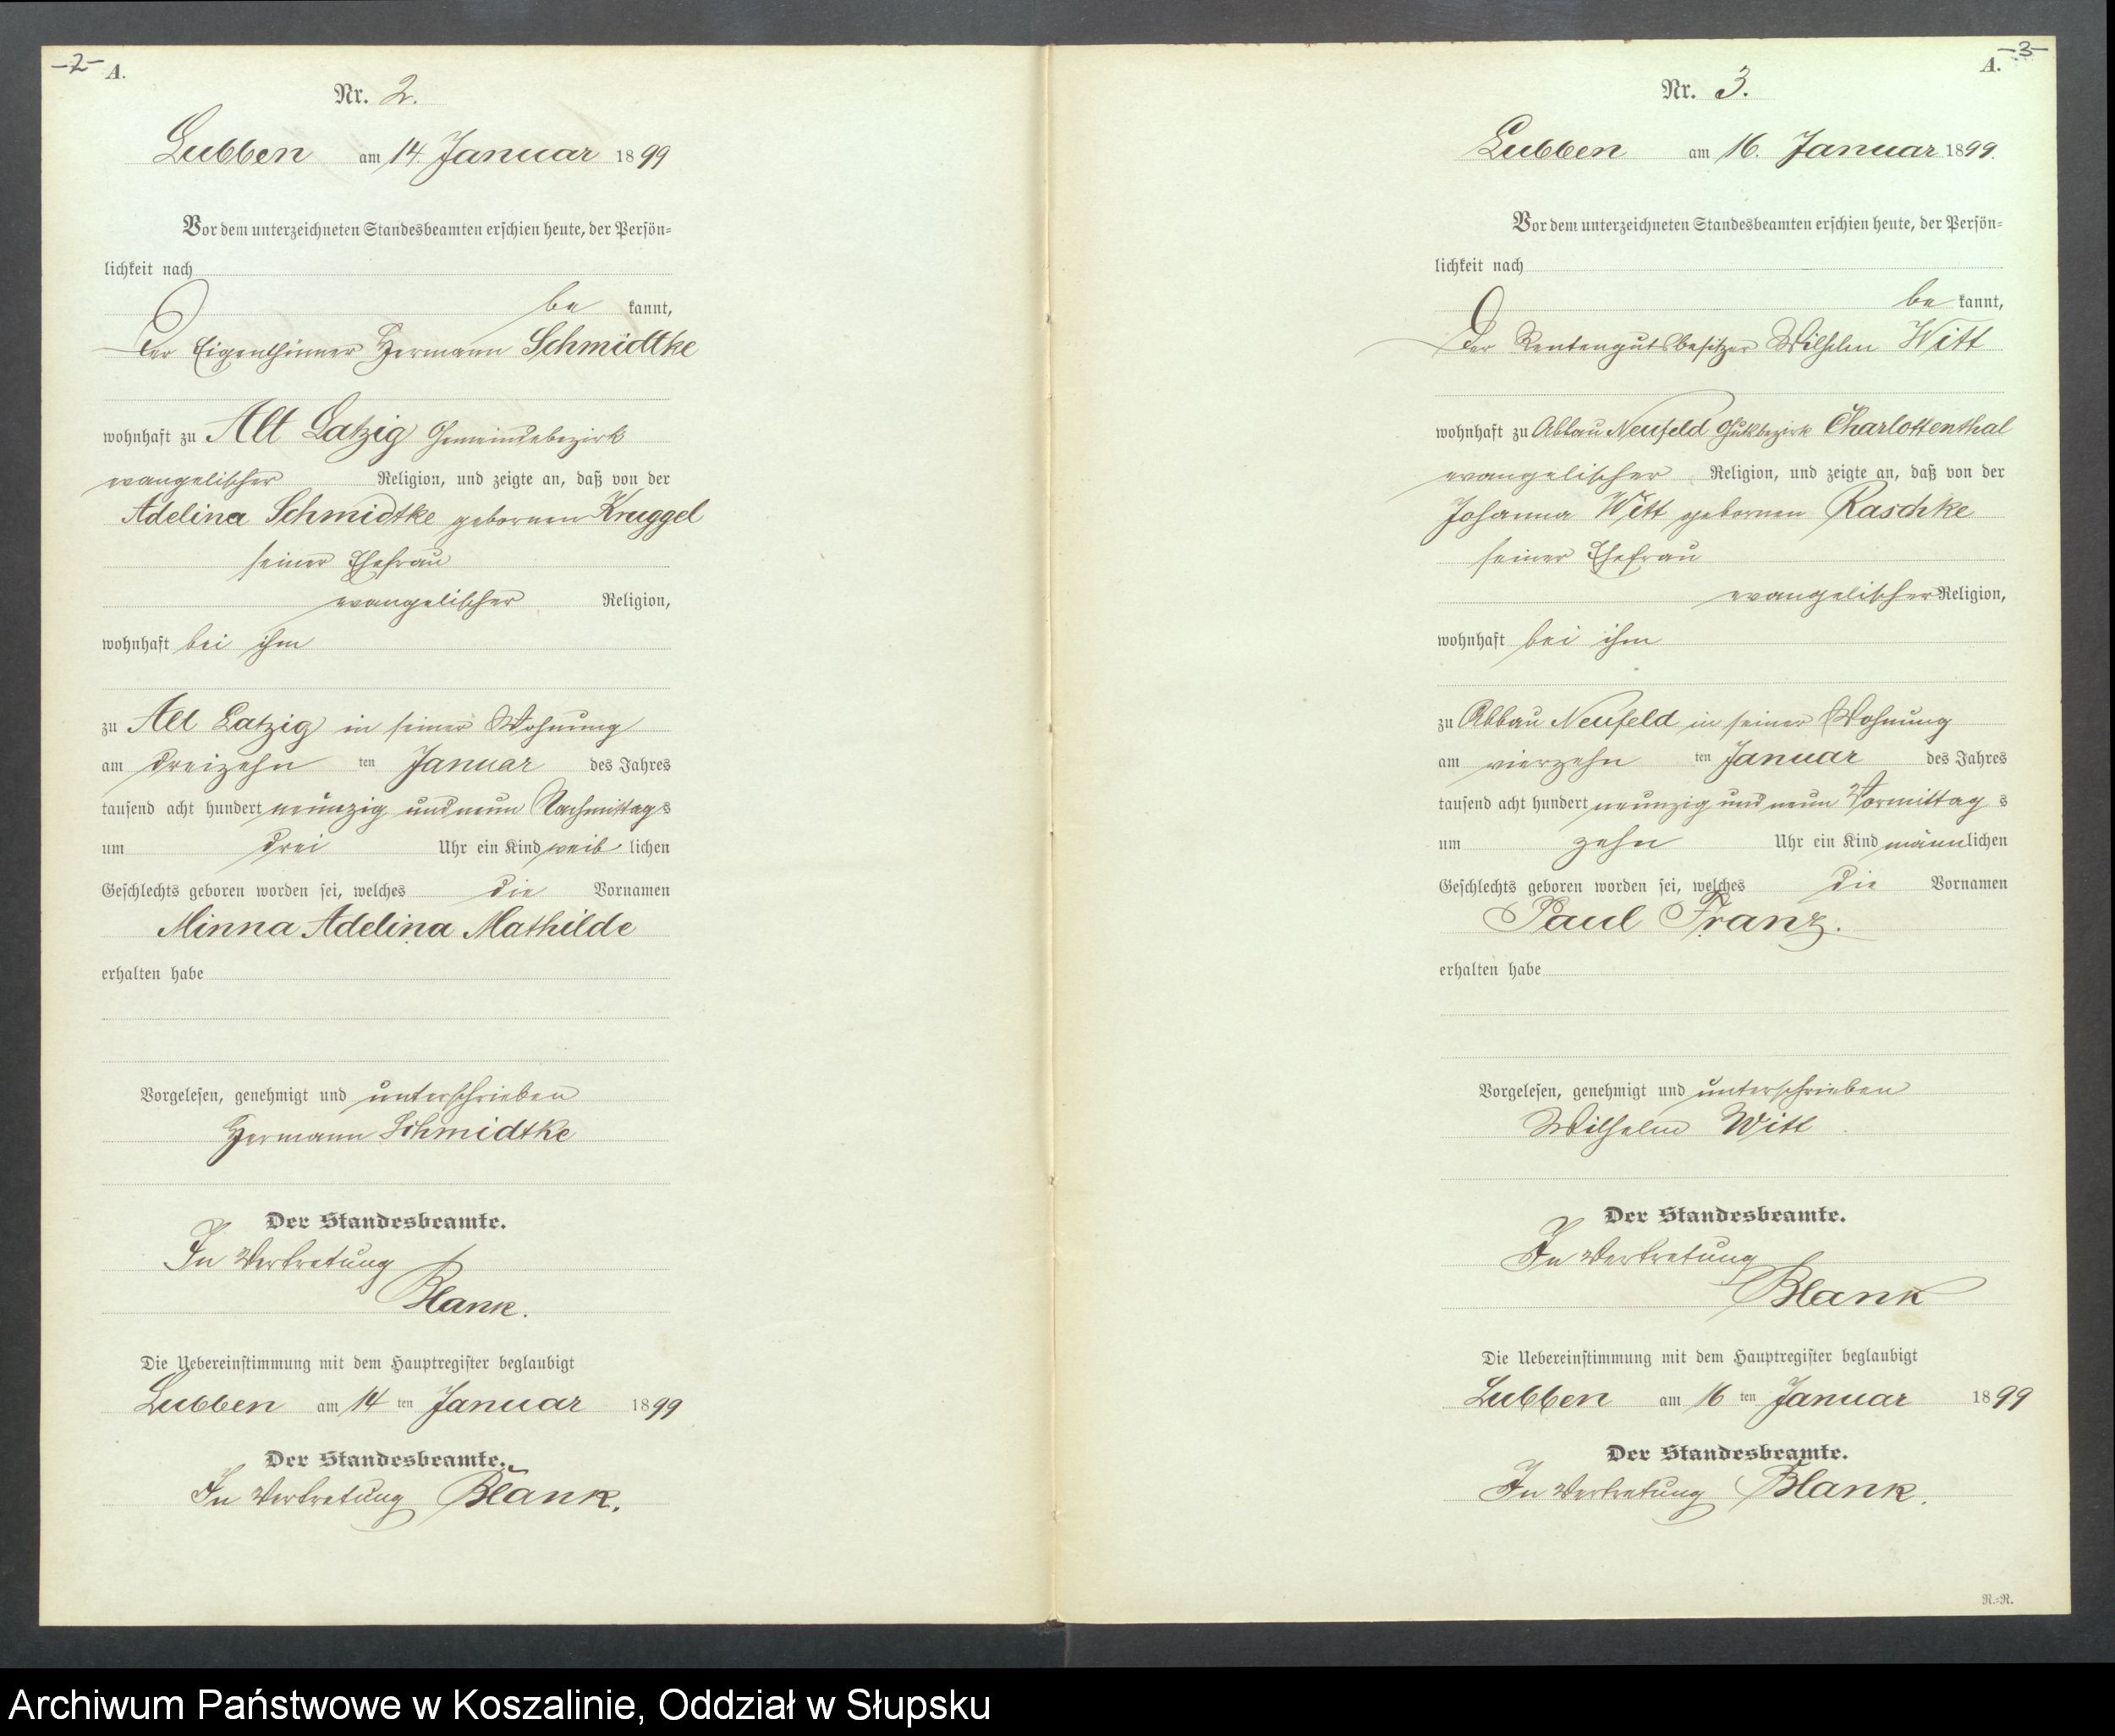 -2-
A.
Nr. 2.
Lubben am 14. Januar 1899
Vor dem unterzeichneten Standesbeamten erschien heute, der Persön=
lichkeit nach
be kannt,
der Eigenthümer Hermann Schmidtke
wohnhaft zu Alt Latzig Gemeindebezirk
evangelischer Religion, und zeigte an, daß von der
Adelina Schmidtke gebornen Kruggel
seiner Ehefrau
evangelischer Religion,
wohnhaft bei ihm
zu Alt Latzig in seiner Wohnung
am dreizehn ten Januar des Jahres
tausend acht hundert neunzig und neun Nachmittag s
um drei Uhr ein Kind weib lichen
Geschlechts geboren worden sei, welches die Vornamen
Minna Adelina Mathilde
erhalten habe
Vorgelesen, genehmigt und unterschrieben
Hermann Schmidtke
Der Standesbeamte.
In Vertretung
Blank.
Die Uebereinstimmung mit dem Hauptregister beglaubigt
Lubben am 14 ten Januar 1899
Der Standesbeamte.
In Vertretung Blank.
-3-
A.
Nr. 3.
Lubben am 16. Januar 1899.
Vor dem unterzeichneten Standesbeamten erschien heute, der Persön=
lichkeit nach
be kannt,
der Rentengutsbesitzer Wilhelm Witt
wohnhaft zu Abbau Neufeld Gutsbezirk Charlottenthal
evangelischer Religion, und zeigte an, daß von der
Johanna Witt gebornen Raschke
seiner Ehefrau
evangelischer Religion,
wohnhaft bei ihm
zu Abbau Neufeld in seiner Wohnung
am vierzehn ten Januar des Jahres
tausend acht hundert neunzig und neun Vormittag s
um zehn Uhr ein Kind männ lichen
Geschlechts geboren worden sei, welches die Vornamen
Paul Franz.
erhalten habe
Vorgelesen, genehmigt und unterschrieben
Wilhelm Witt
Der Standesbeamte.
In Vertretung
Blank
Die Uebereinstimmung mit dem Hauptregister beglaubigt
Lubben am 16 ten Januar 1899
Der Standesbeamte.
In Vertretung Blank.
R.=R.
Archiwum Państwowe w Koszalinie, Oddział w Słupsku